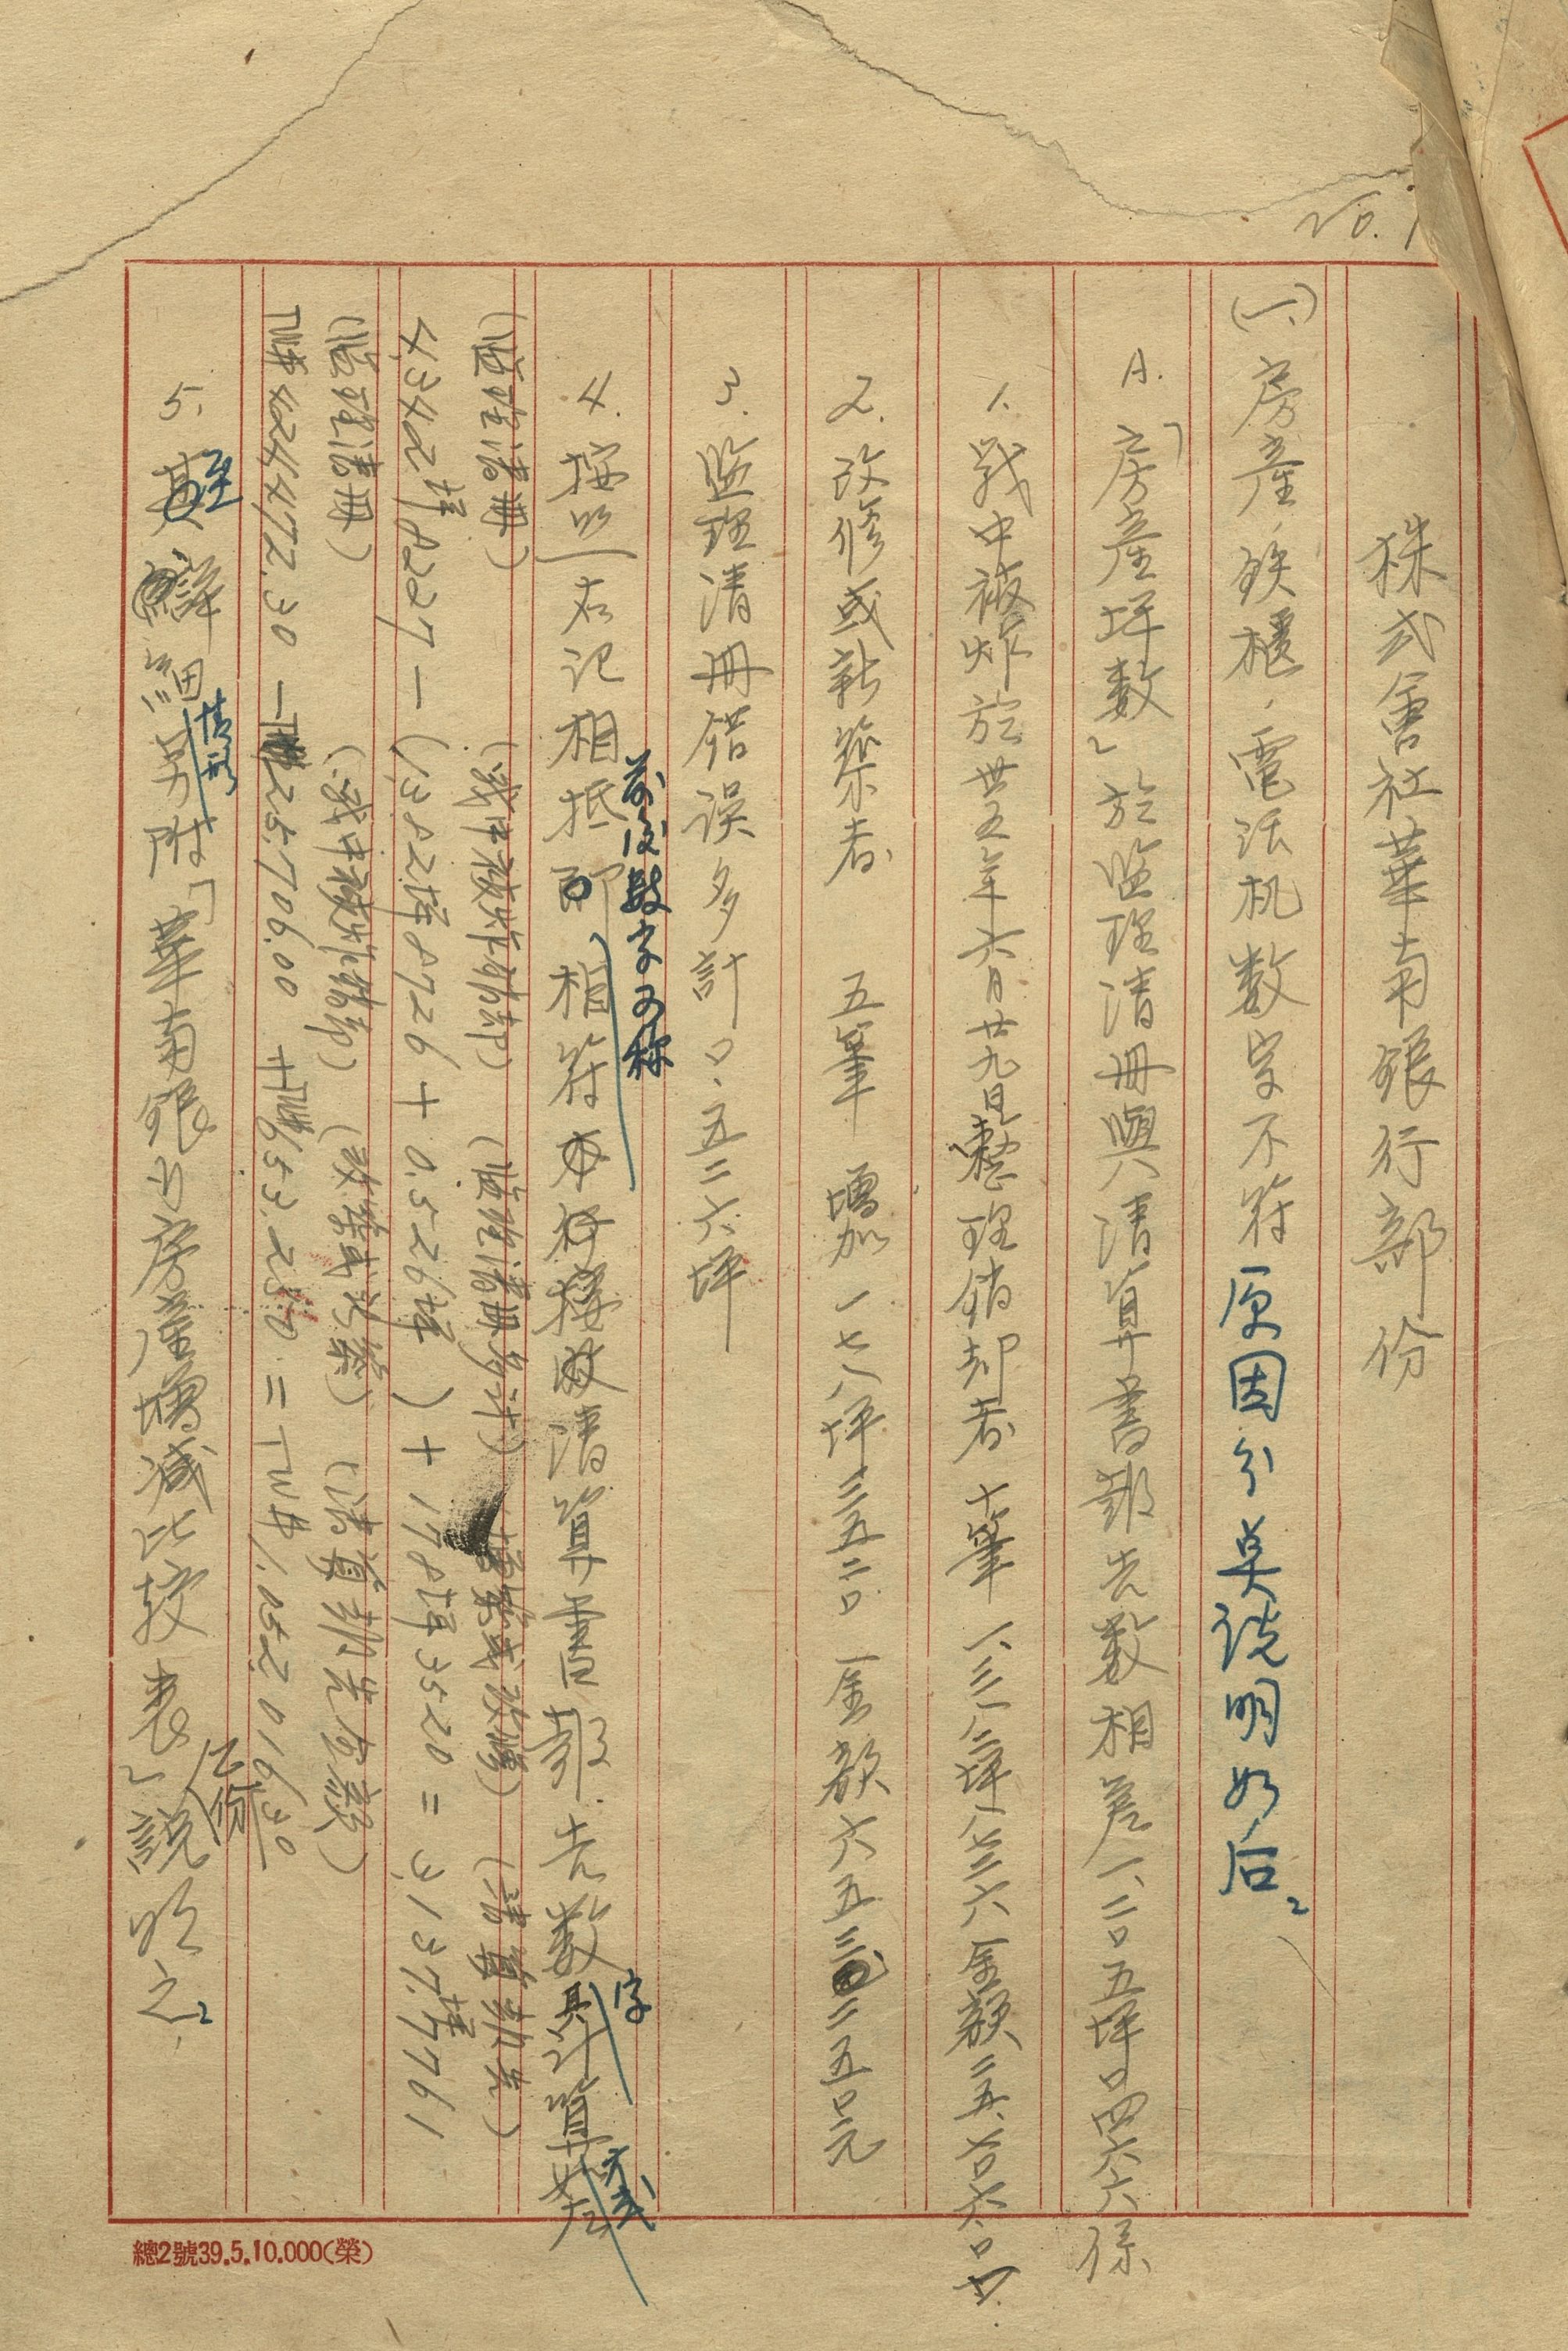 株式會社華南銀行部份
(一)房產,鉄櫃,電話机数字不符原因分奠說明如后
A.「房產坪数」於監理清冊與清算書報告数相差一、二〇五坪〇四六六係
1.戰中被炸於卅五年六月廿九日整理銷却者 十筆 一、三八二坪八七二六 金額二五、七〇六.〇〇
2.改修或新築者 五筆 增加 一七八坪三五二〇 金額六五三二五〇元
3.監理清冊錯误多計〇、五二六坪
前后数字又称
4.按以右记相抵即相符本行接收清算書報告数字計算方式如左
(監理清冊) (戰中被炸部份) (監理清冊多計) 增築或改修) (清算報告)
4,342坪8227-(1,382坪8726+0.526坪)+178坪3520=3,137坪7761
(監理清冊) (戰中被炸部份) (改築或新築) (清算報告金額)
TW$424472.30-TW$25.706.00+TW$653.250=TW$1.052.016.30
5.至詳細情形另附「華南銀行房產增減比較表」乙份說明之
總2號39.5.10.000(榮)